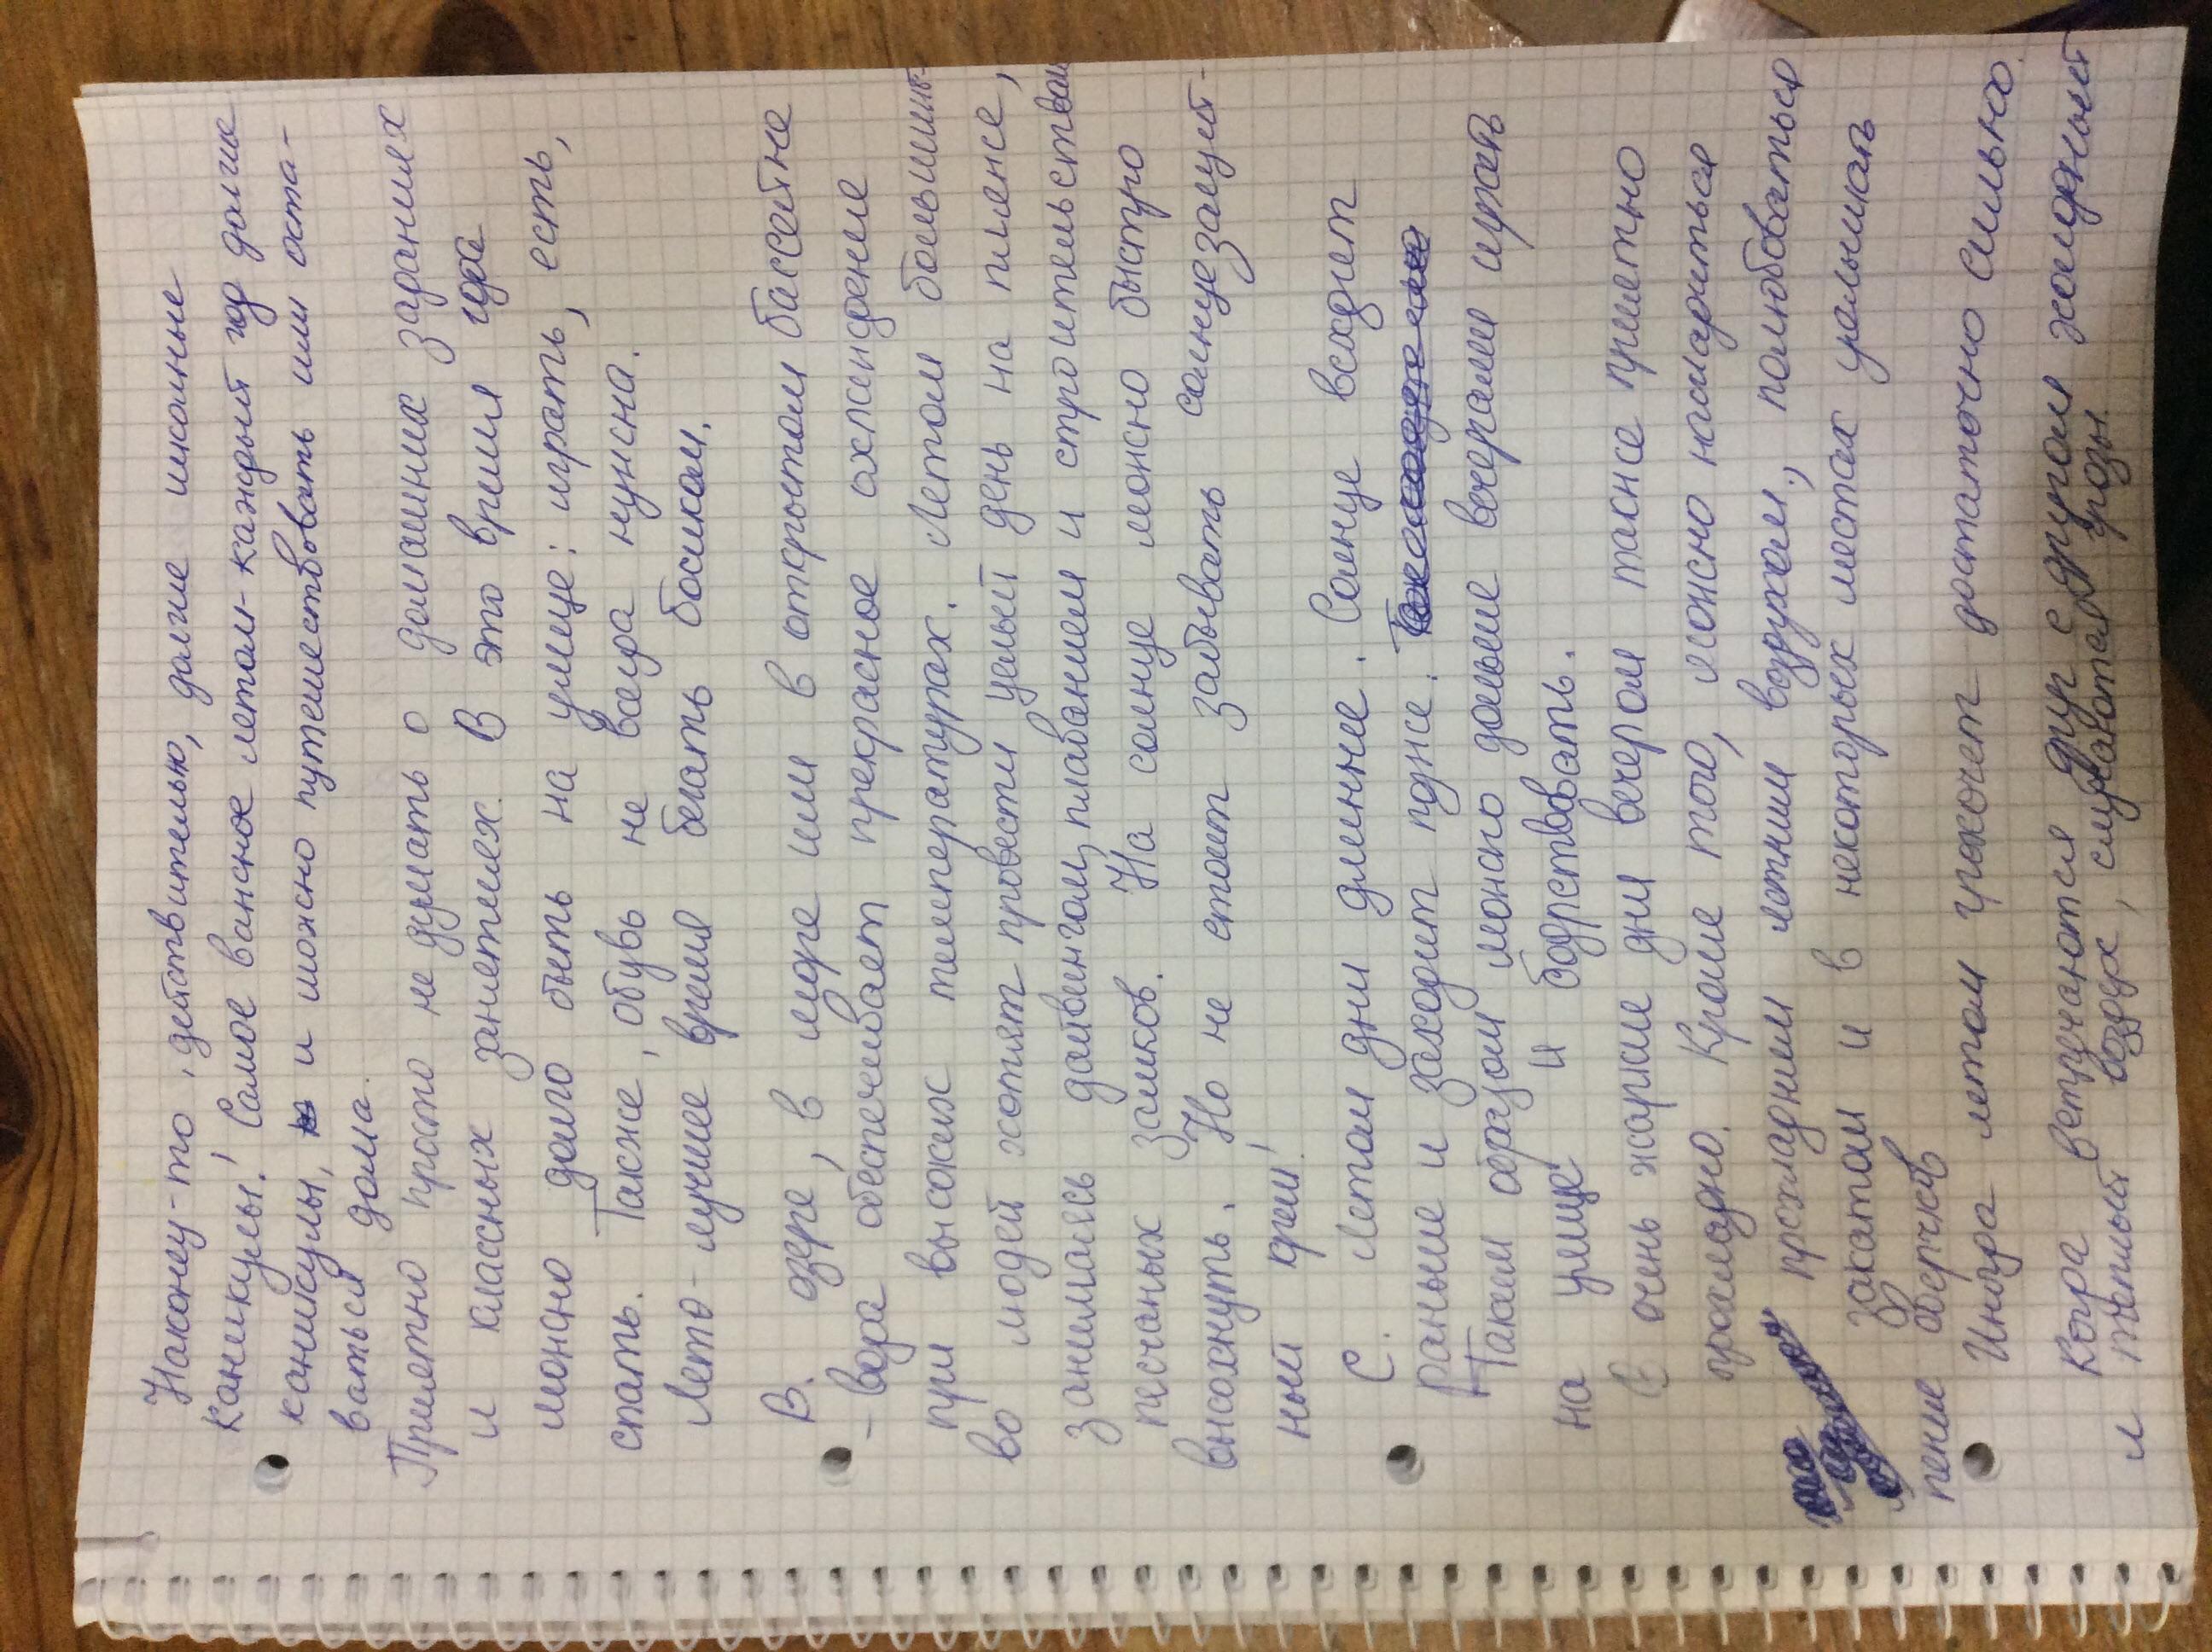 Наконец-то, действительно, долгие школьные
каникулы! Самое важное летом-каждый год долгие
каникулы, и можно путешествовать или оста-
ваться дома.
Приятно просто не думать о домашних заданиях
и классных занятиях. В это время года
можно долго быть на улице: играть, есть,
спать. Также, обувь не всегда нужна.
Лето-лучшее время бегать босиком.
В. озере, в море или в открытом бассейне
-вода обеспечивает прекрасное охлаждение
при высоких температурах. Летом большинст-
во людей хотят провести целый день на пляже,
занимаясь дайвингом, плаванием и строительством
песчаных замков. На солнце можно быстро
высохнуть. Но не стоит забывать солнцезащит-
ный крем!
С. Летом дни длиннее. Солнце всходит
раньше и заходит позже.
Таким образом можно дольше вечерами играть
на улице и бодрствовать.
В очень жаркие дни вечером также приятно
прохладно. Кроме того, можно насладиться
прохладным летним воздухом, полюбоваться
закатом и в некоторых местах услышать
пение сверчков
Иногда летом грохочет достаточно сильно.
Когда встречаются друг с другом холодный
и теплый воздух, случаются грозы.